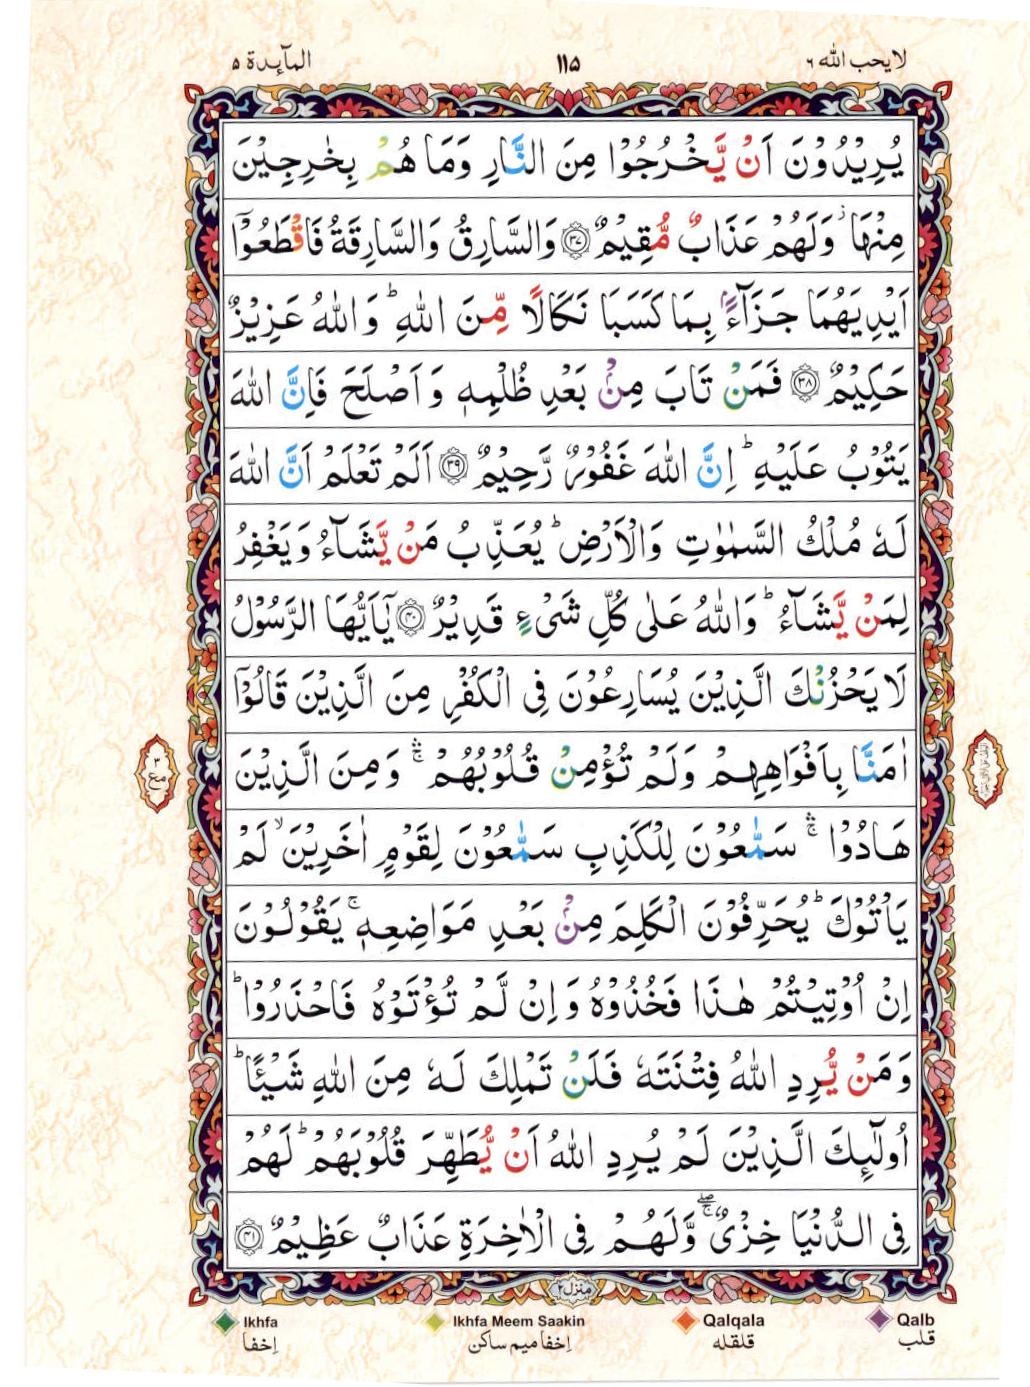 المآئدة ۵
۱۱۵
لا يحب الله ۶
يُرِيْدُوْنَ اَنْ يَّخْرُجُوْا مِنَ النَّارِ وَمَا هُمْ بِخٰرِجِيْنَ
مِنْهَا ۫ وَلَهُمْ عَذَابٌ مُّقِيْمٌ ﴿۳۷﴾ وَالسَّارِقُ وَالسَّارِقَةُ فَاقْطَعُوْۤا
اَيْدِيَهُمَا جَزَآءًۢ بِمَا كَسَبَا نَكَالًا مِّنَ اللّٰهِ ؕ وَ اللّٰهُ عَزِيْزٌ
حَكِيْمٌ ﴿۳۸﴾ فَمَنْ تَابَ مِنْۢ بَعْدِ ظُلْمِهٖ وَ اَصْلَحَ فَاِنَّ اللّٰهَ
يَتُوْبُ عَلَيْهِ ؕ اِنَّ اللّٰهَ غَفُوْرٌ رَّحِيْمٌ ﴿۳۹﴾ اَلَمْ تَعْلَمْ اَنَّ اللّٰهَ
لَهٗ مُلْكُ السَّمٰوٰتِ وَالْاَرْضِ ؕ يُعَذِّبُ مَنْ يَّشَآءُ وَ يَغْفِرُ
لِمَنْ يَّشَآءُ ؕ وَاللّٰهُ عَلٰى كُلِّ شَىْءٍ قَدِيْرٌ ﴿۴۰﴾ يٰۤاَيُّهَا الرَّسُوْلُ
لَا يَحْزُنْكَ الَّذِيْنَ يُسَارِعُوْنَ فِى الْكُفْرِ مِنَ الَّذِيْنَ قَالُوْۤا
اٰمَنَّا بِاَفْوَاهِهِمْ وَلَمْ تُؤْمِنْ قُلُوْبُهُمْ ۛۚ وَ مِنَ الَّذِيْنَ
هَادُوْا ۛۚ سَمّٰعُوْنَ لِلْكَذِبِ سَمّٰعُوْنَ لِقَوْمٍ اٰخَرِيْنَ ۙ لَمْ
يَاْتُوْكَ ؕ يُحَرِّفُوْنَ الْكَلِمَ مِنْۢ بَعْدِ مَوَاضِعِهٖ ۚ يَقُوْلُوْنَ
اِنْ اُوْتِيْتُمْ هٰذَا فَخُذُوْهُ وَ اِنْ لَّمْ تُؤْتَوْهُ فَاحْذَرُوْا ؕ
وَ مَنْ يُّرِدِ اللّٰهُ فِتْنَتَهٗ فَلَنْ تَمْلِكَ لَهٗ مِنَ اللّٰهِ شَيْـًٔا ؕ
اُولٰٓئِكَ الَّذِيْنَ لَمْ يُرِدِ اللّٰهُ اَنْ يُّطَهِّرَ قُلُوْبَهُمْ ؕ لَهُمْ
فِى الدُّنْيَا خِزْىٌ ۖۚ وَّلَهُمْ فِى الْاٰخِرَةِ عَذَابٌ عَظِيْمٌ ﴿۴۱﴾
۳
مع
منزل ۲
Ikhfa
اِخفا
Ikhfa Meem Saakin
اِخفا میم ساکن
Qalqala
قلقله
Qalb
قلب